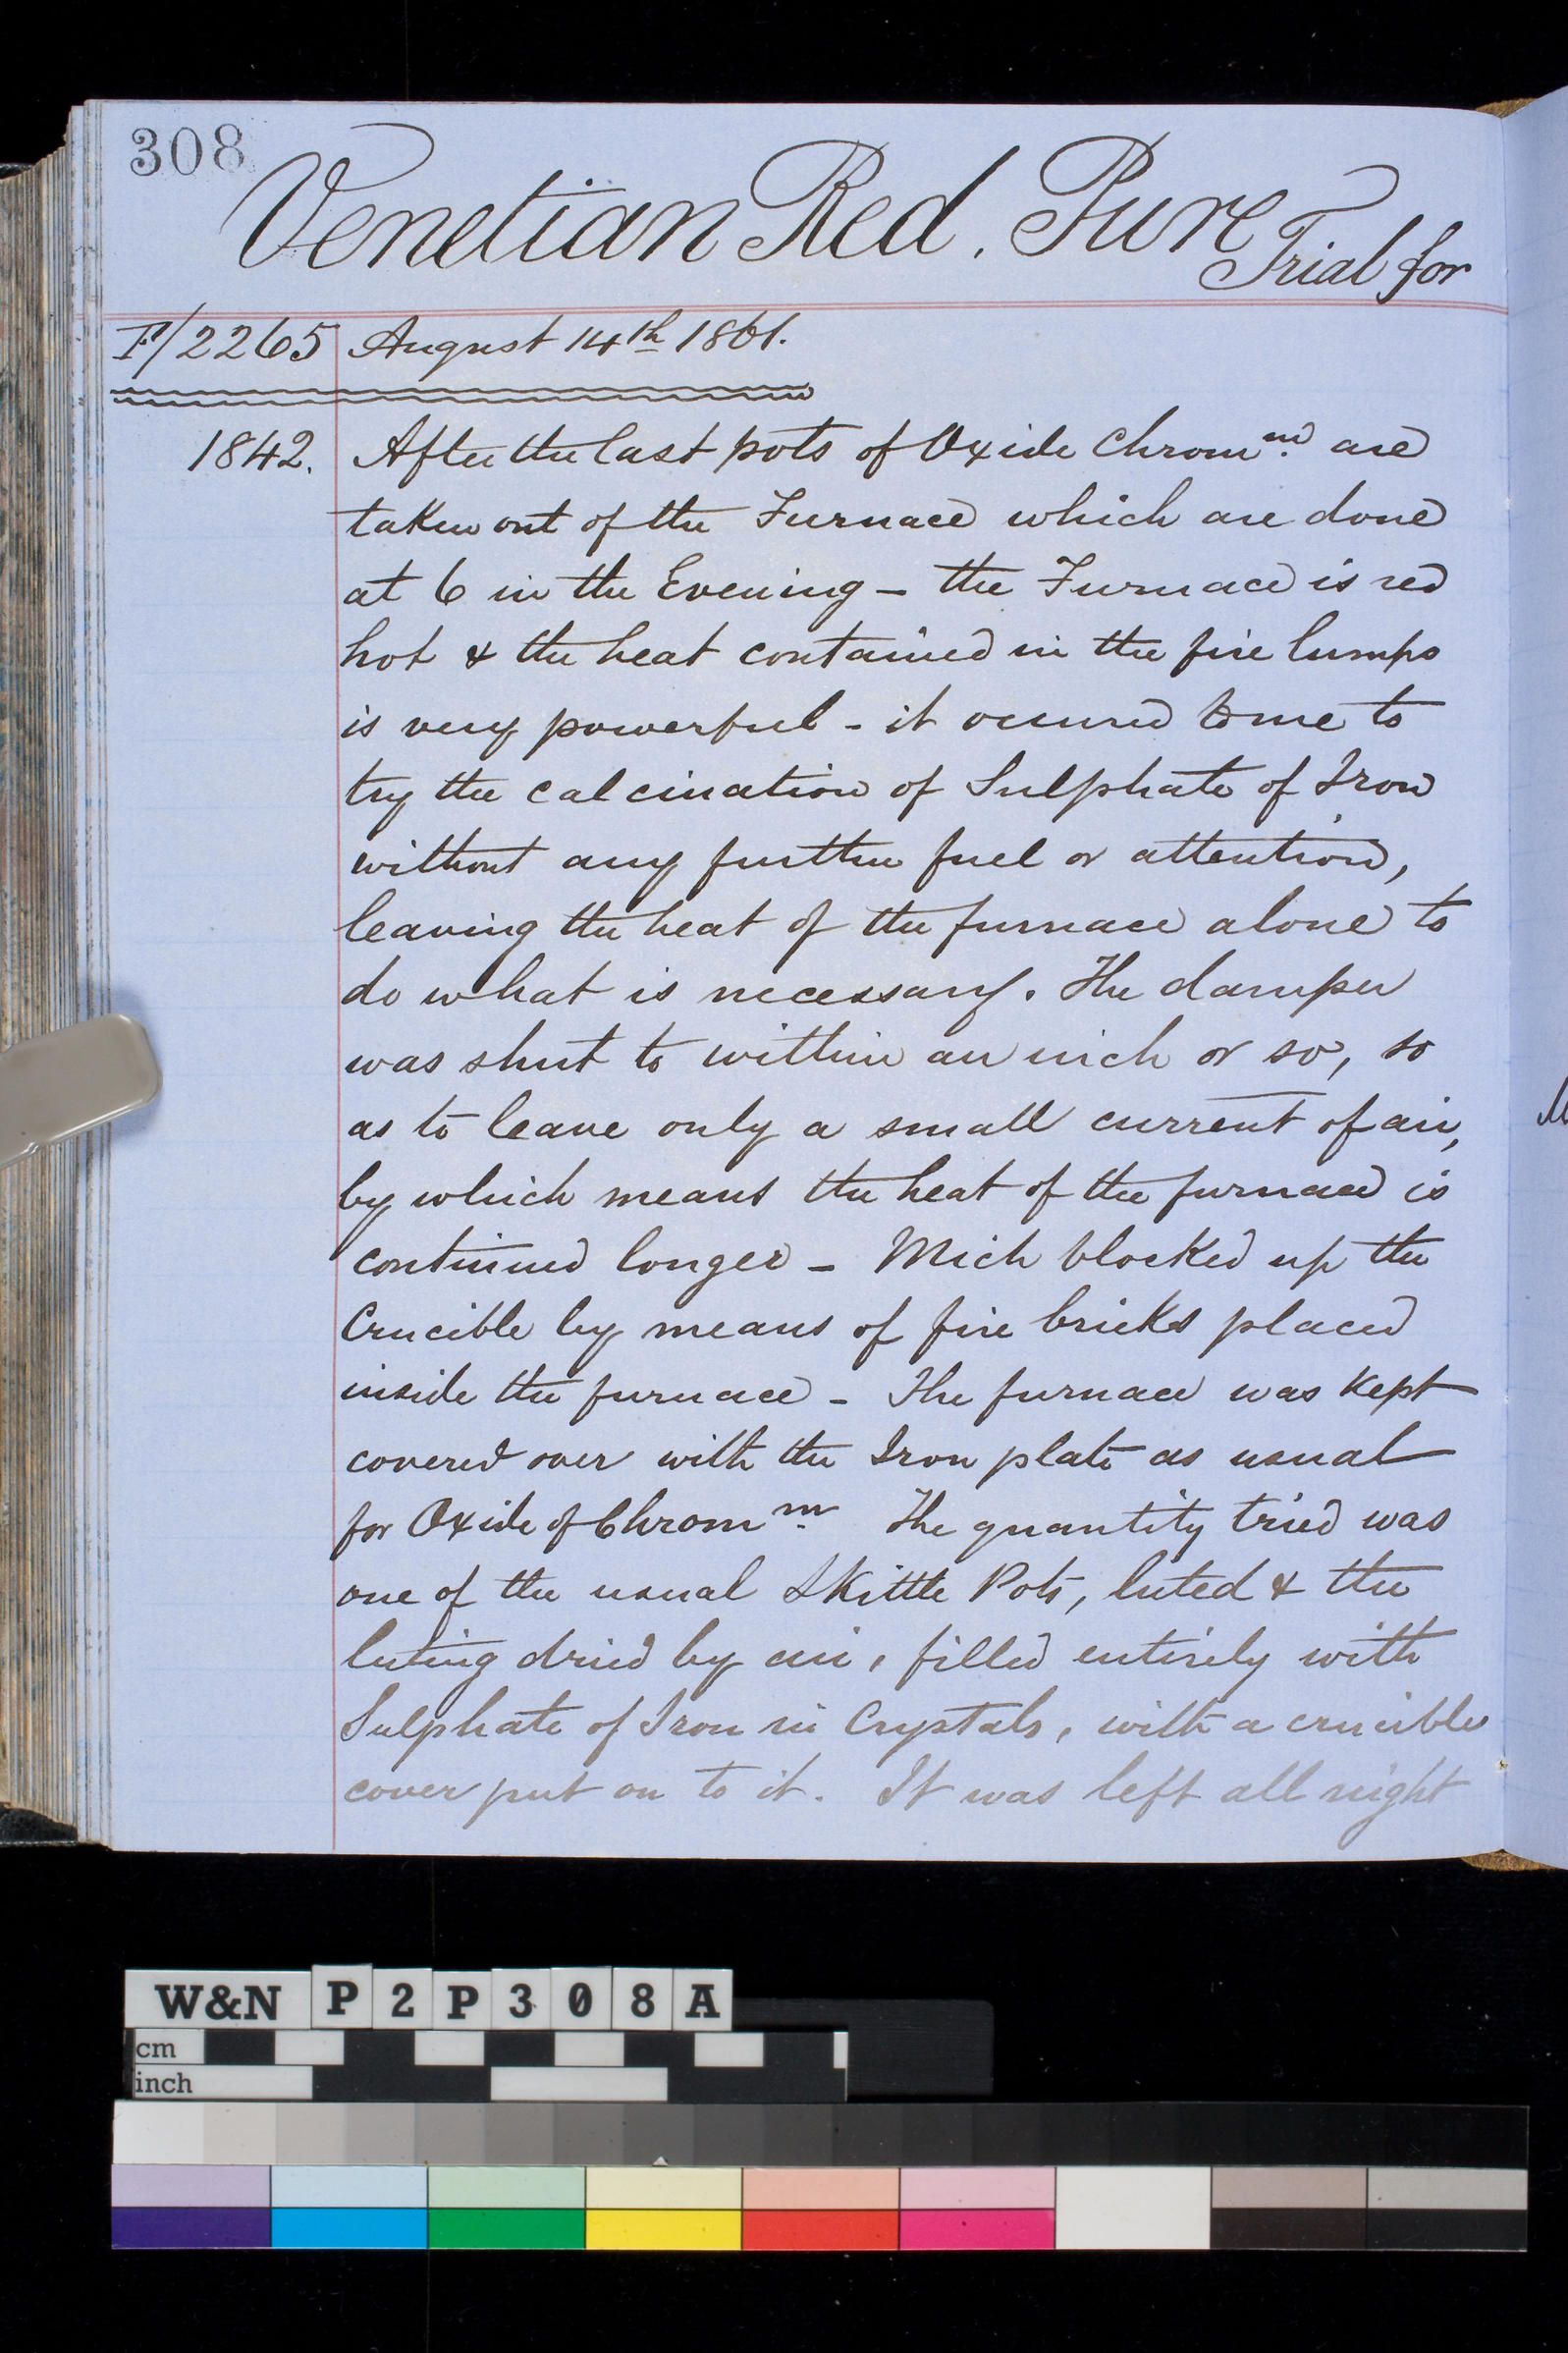 308
Venetian Red. Pure Trial for
F/2265 August 14th 1861.
1842. After the last pots of Oxide Chromm. are
taken out of the Furnace which are done
at 6 in the Evening – the Furnace is red
hot & the heat contained in the fire lumps
is very powerful – it occured to me to
try the calcination of Sulphate of Iron
without any further fuel or attention,
leaving the heat of the furnace alone to
do what is necessary. The damper
was shut to within an inch or so, so
as to leave only a small current of air,
by which means the heat of the furnace is
continued longer – Mich blocked up the
Crucible by means of fire bricks placed
inside the furnace – The furnace was kept
covered over with the Iron plate as usual
for Oxide of Chromm. The quantity tried was
one of the usual Skittle Pots, luted & the
luting dried by air, filled entirely with
Sulphate of Iron in Crystals, with a crucible
cover put on to it. It was left all night
W&N P2P308A
cm
inch